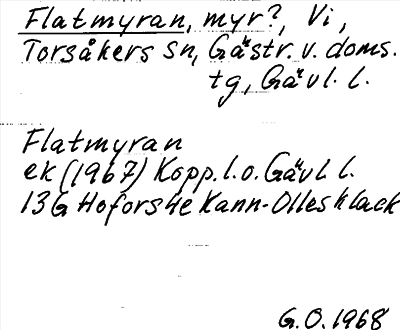 Flatmyran, myr?, Vi,
Torsåkers sn, Gästr. v. doms.
tg, Gävl. l.
Flatmyran
ek (1967) Kopp. l. o. Gävl l.
13G Hofors 4e Kann-Ollesklack
G.O. 1968